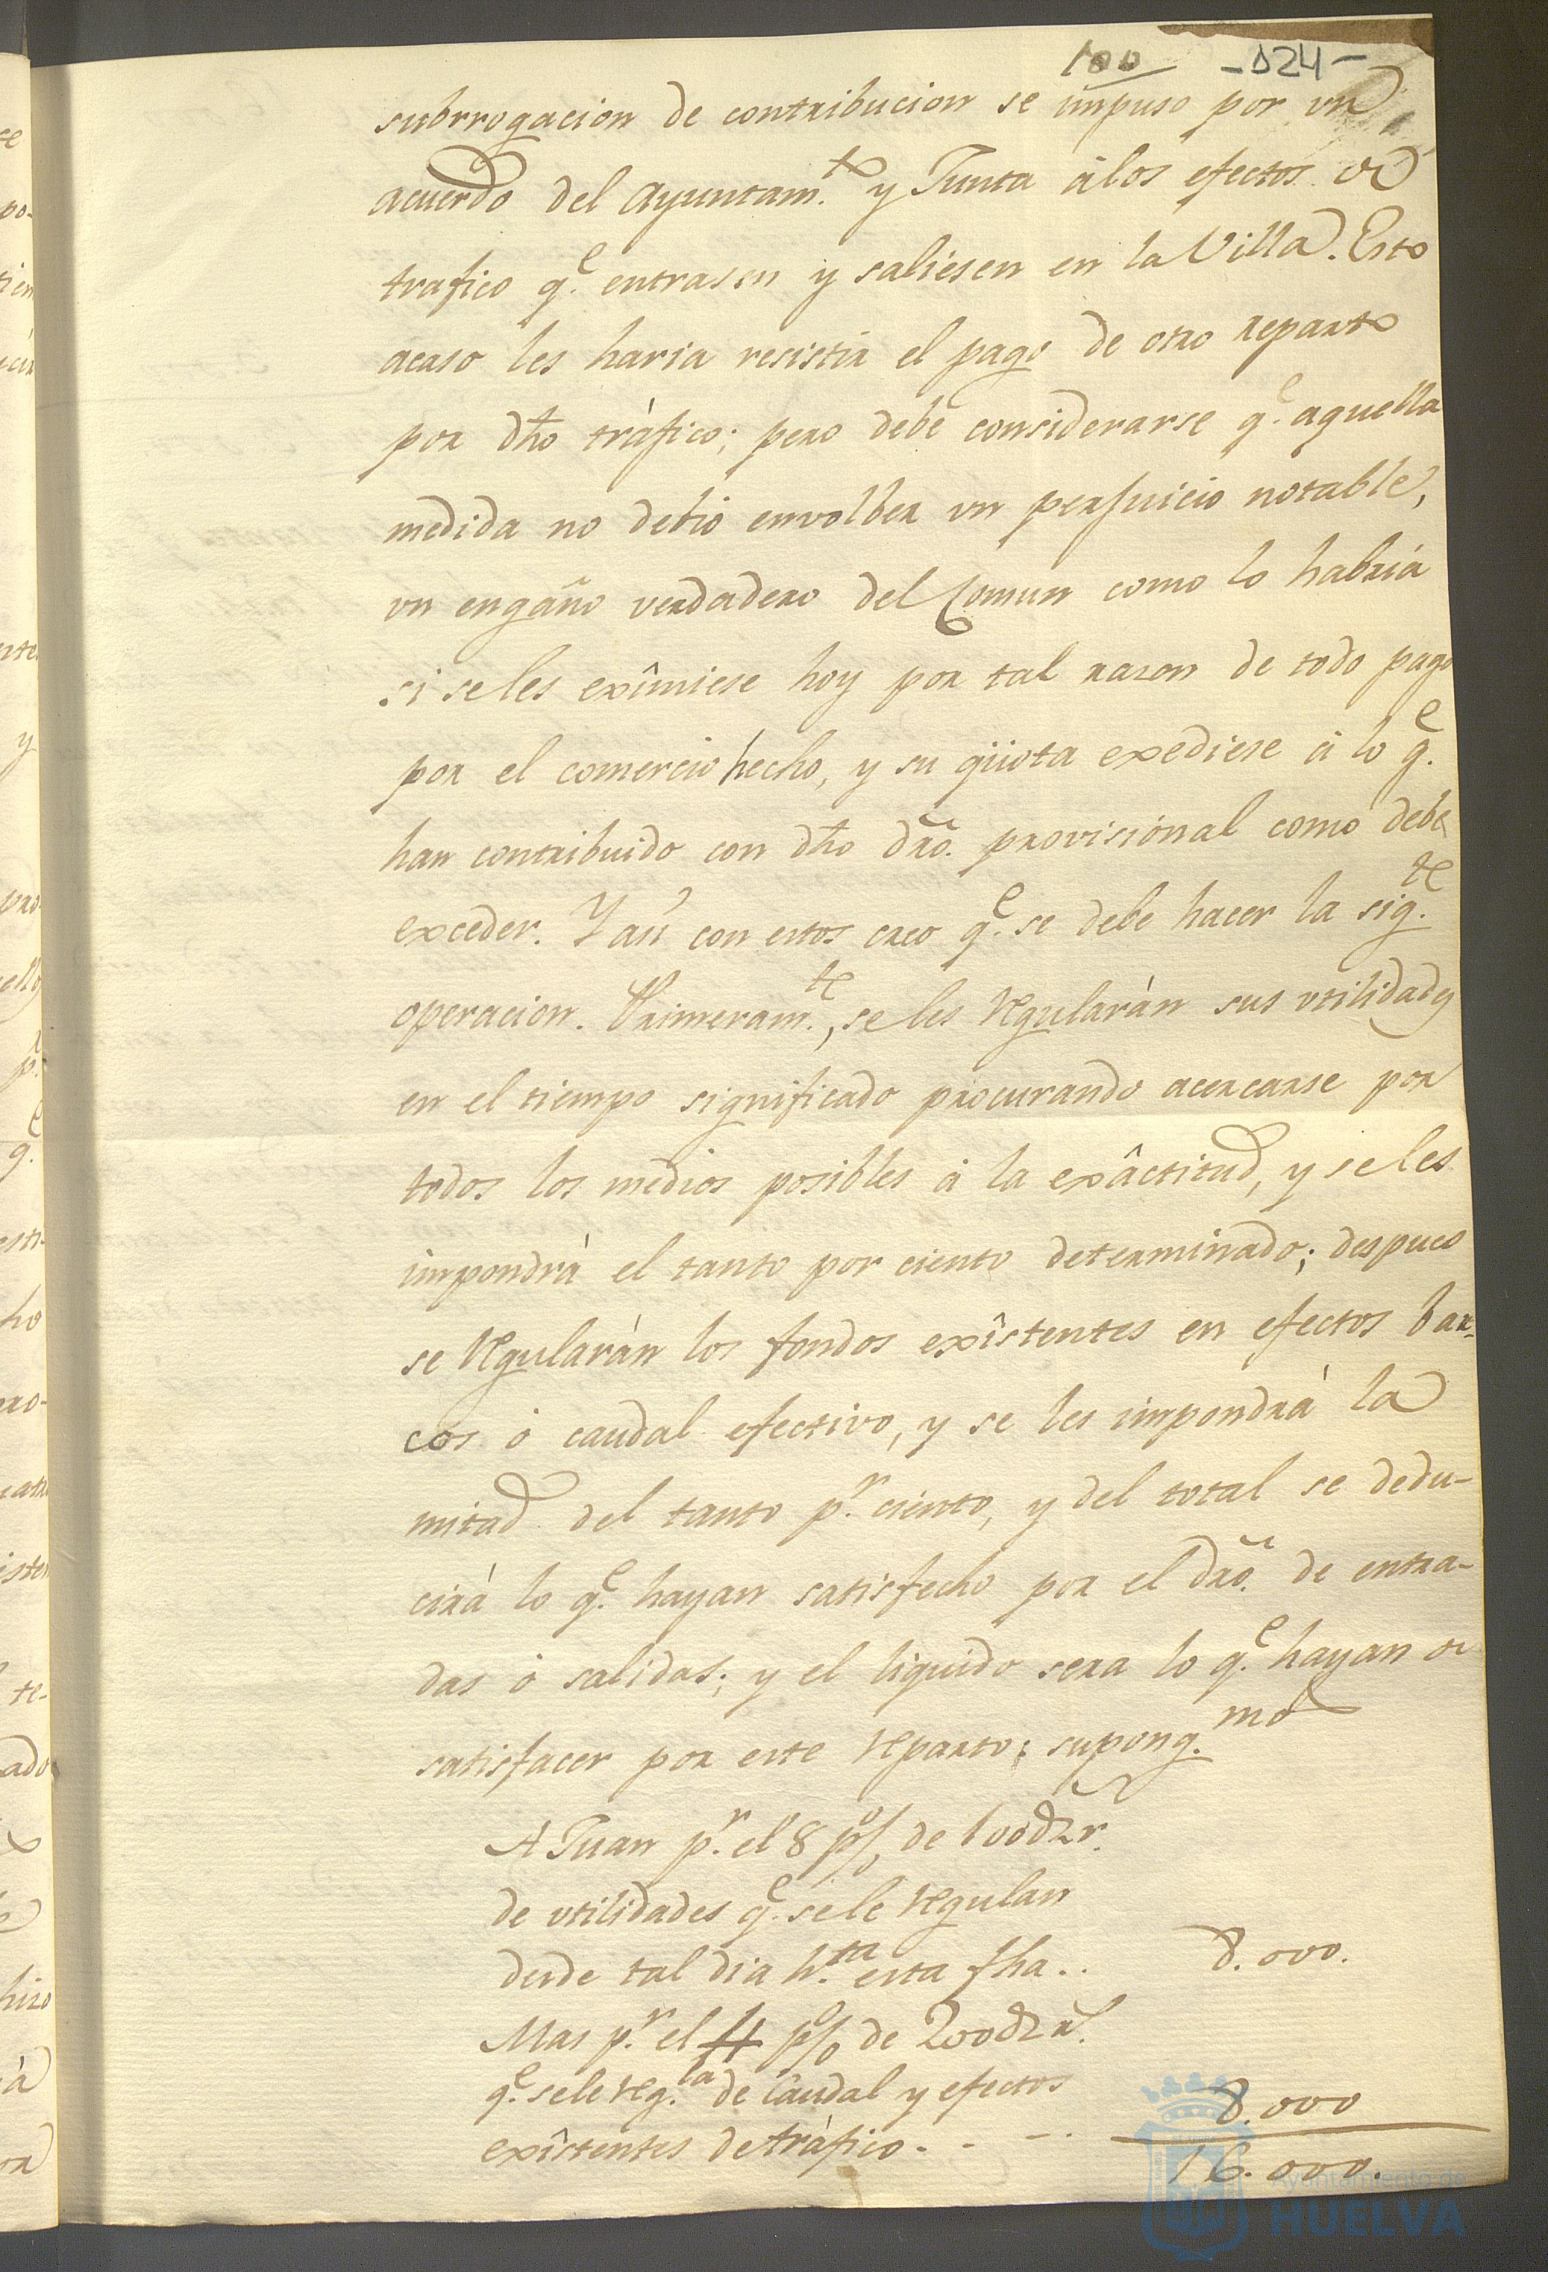 100 -024-
subrrogacion de contribucion se impuso por vn
acuerdo del Ayuntam.to y Junta álos efectos de
trafico q.e entrasen y saliesen en la Villa. Esto
acaso les haria resistir el pago de otro reparto
por dho tráfico; pero debe considerarse q.e aquella
medida no debió envolber vn perjuicio notable,
vn engaño verdadero del Comun como lo habria
si seles exîmiese hoy por tal razon de todo pago
por el comercio hecho, y su qüota exediese á lo q.e
han contribuido con dho dro. provisional como debe
exceder. Y aú con estos creo q.e se debe hacer la sig.te
operacion. Primeram.te, seles regularán sus vtilidades
en el tiempo significado procurando acercarse por
todos los medios posibles á la exâctitud, y seles
impondrá el tanto por ciento determinado; despues
se regularán los fondos exîstentes en efectos bar-
cos ó caudal efectivo, y se les impondrá la
mitad del tanto p.r ciento, y del total se dedu-
cirá lo q.e hayan satisfecho por el dro. de entra-
das ó salidas; y el liquido sera lo q.e hayan de
satisfacer por este reparto; supong.mos
A Juan p.r el 8 p% de 100d rr.
de vtilidades q.e sele regulan
desde tal dia h.ta esta fha.. 8.000.
Mas p.r el 4 p% de 200d r.s
q.e sele reg.la de caudal y efectos
exîstentes de tráfico. - - - 8.000
16.000.
Ayuntamiento de
HUELVA